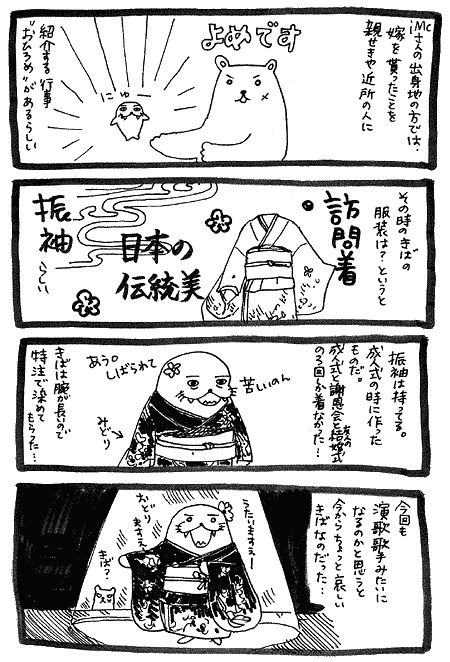 iMcさんの出身地の方では、
嫁を貰ったことを
親せきや近所の人に
よめです
にゅ
紹介する行事
"おひろめ"があるらしい
その時のきばの
服装は？というと
訪問着
日本の
伝統美
振袖
らしい
振袖は持ってる。
成人式の時に作った
ものだ。
成人式と謝恩会と友人の結婚式
の3回しか着なかった…
苦しいのん
あう。
しばられて
みどり
きばは腕が長いので
特注で染めて
もらった…
今回も
演歌歌手みたいに
なるのかと思うと
今からちょっと哀しい
きばなのだった…
うたいますえー
おどり
ますえー
きば？